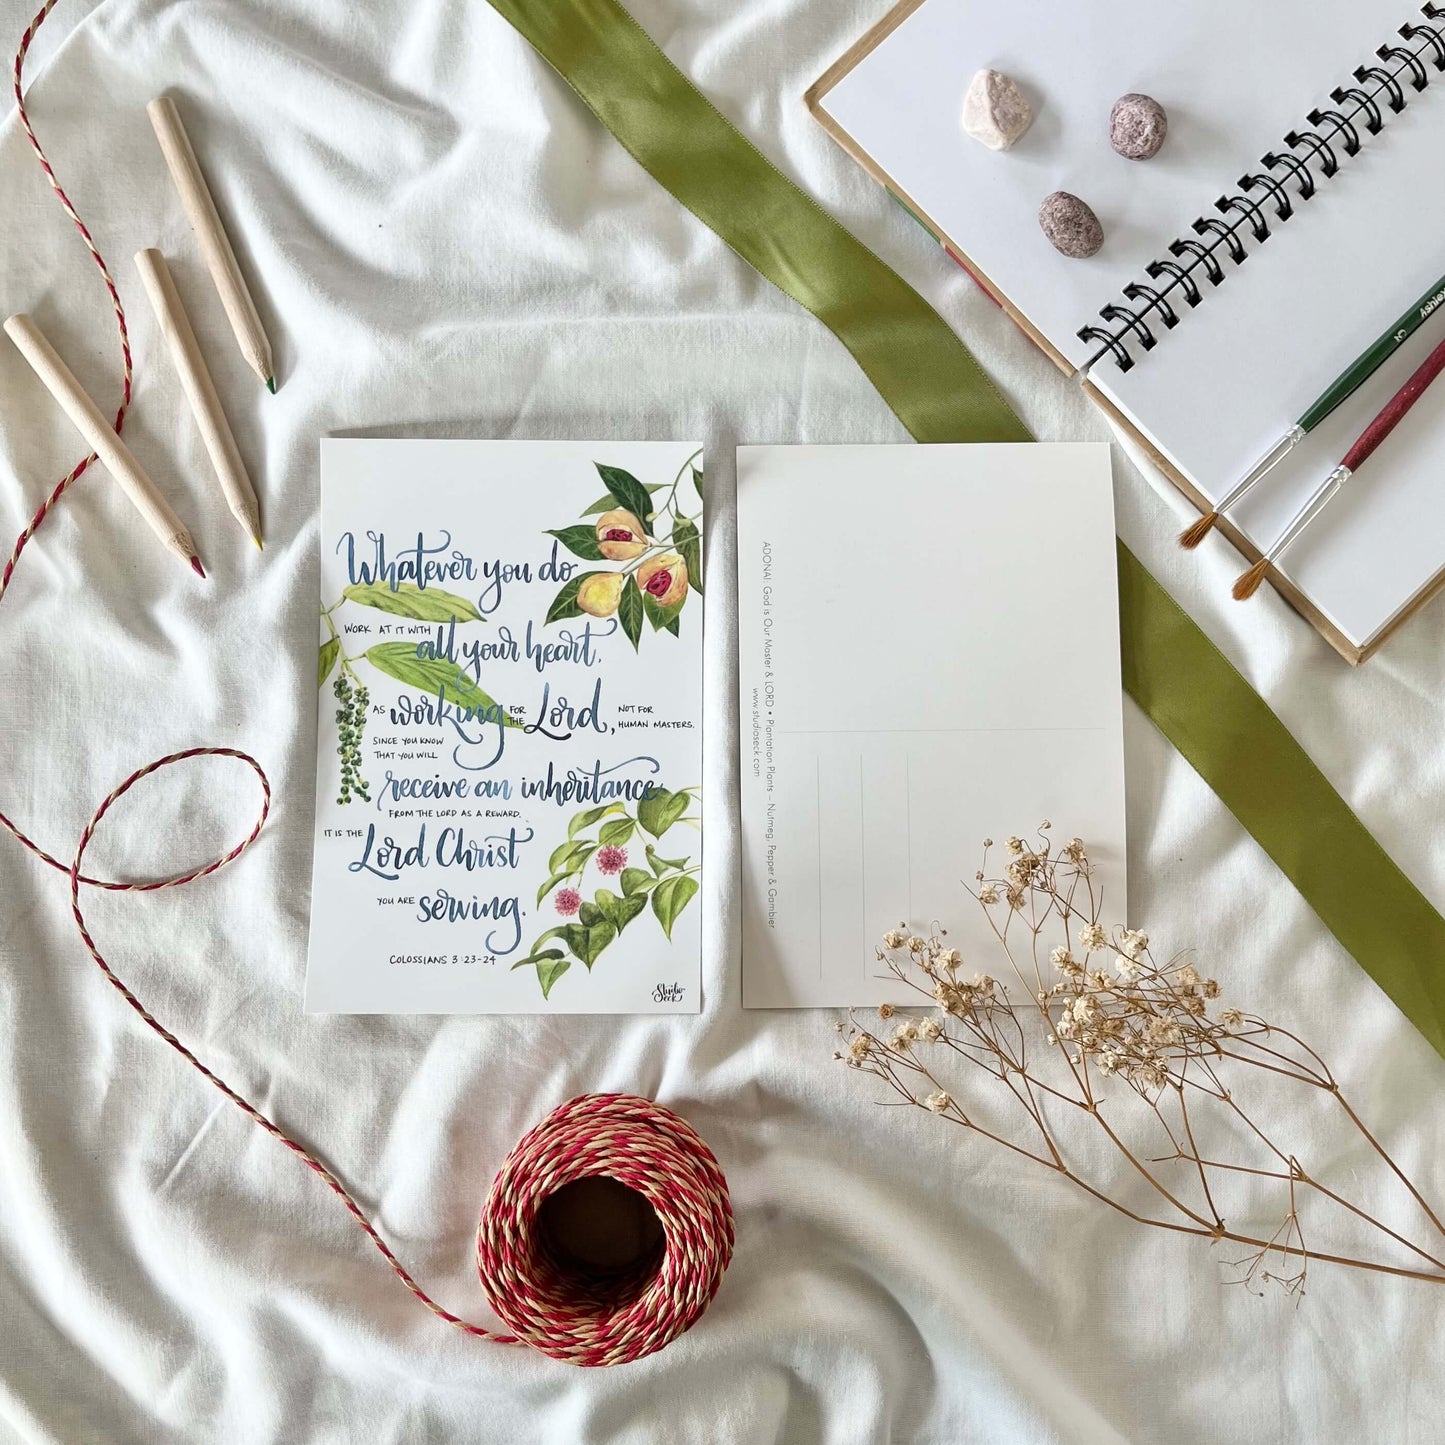 Whatever you do
WORK AT IT WITH all your heart,
AS working FOR THE Lord, NOT FOR HUMAN MASTERS.
SINCE YOU KNOW
THAT YOU WILL
receive an inheritance
FROM THE LORD AS A REWARD.
IT IS THE Lord Christ
YOU ARE serving.
COLOSSIANS 3:23-24
Studio
Seck
ADONAI: God is Our Master & LORD • Plantation Plants – Nutmeg, Pepper & Gambier
www.studioseck.com
5 Ashley